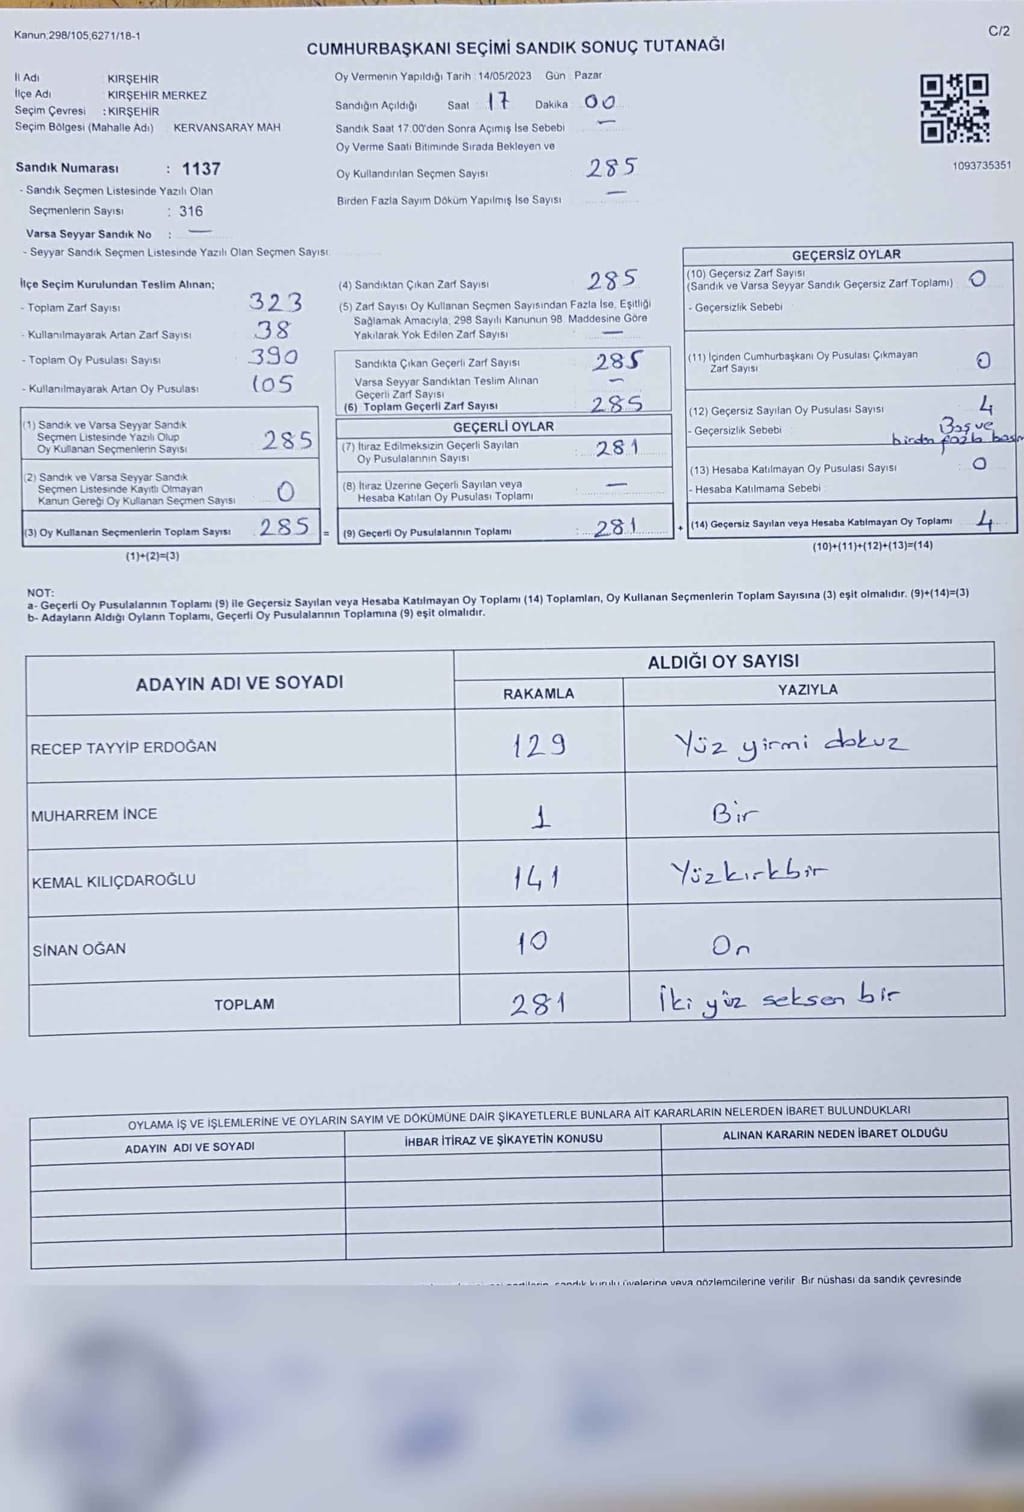 Kanun,298/105,6271/18-1
C/2
CUMHURBAŞKANI SEÇİMİ SANDIK SONUÇ TUTANAĞI
İl Adı KIRŞEHİR
İlçe Adı KIRŞEHİR MERKEZ
Seçim Çevresi : KIRŞEHİR
Seçim Bölgesi (Mahalle Adı) KERVANSARAY MAH
Sandık Numarası : 1137
- Sandık Seçmen Listesinde Yazılı Olan
Seçmenlerin Sayısı : 316
Varsa Seyyar Sandık No : —
- Seyyar Sandık Seçmen Listesinde Yazılı Olan Seçmen Sayısı
Oy Vermenin Yapıldığı Tarih 14/05/2023 Gün Pazar
Sandığın Açıldığı Saat 17 Dakika 00
Sandık Saat 17.00'den Sonra Açımış İse Sebebi —
Oy Verme Saati Bitiminde Sırada Bekleyen ve
Oy Kullandırılan Seçmen Sayısı 285
Birden Fazla Sayım Döküm Yapılmış İse Sayısı —
1093735351
İlçe Seçim Kurulundan Teslim Alınan;
- Toplam Zarf Sayısı 323
- Kullanılmayarak Artan Zarf Sayısı 38
- Toplam Oy Pusulası Sayısı 390
- Kullanılmayarak Artan Oy Pusulası 105
(1) Sandık ve Varsa Seyyar Sandık
Seçmen Listesinde Yazılı Olup
Oy Kullanan Seçmenlerin Sayısı 285
(2) Sandık ve Varsa Seyyar Sandık
Seçmen Listesinde Kayıtlı Olmayan
Kanun Gereği Oy Kullanan Seçmen Sayısı 0
(3) Oy Kullanan Seçmenlerin Toplam Sayısı 285 =
(1)+(2)=(3)
(4) Sandıktan Çıkan Zarf Sayısı 285
(5) Zarf Sayısı Oy Kullanan Seçmen Sayısından Fazla İse, Eşitliği
Sağlamak Amacıyla, 298 Sayılı Kanunun 98. Maddesine Göre
Yakılarak Yok Edilen Zarf Sayısı —
Sandıkta Çıkan Geçerli Zarf Sayısı 285
Varsa Seyyar Sandıktan Teslim Alınan
Geçerli Zarf Sayısı —
(6) Toplam Geçerli Zarf Sayısı 285
GEÇERLİ OYLAR
(7) İtiraz Edilmeksizin Geçerli Sayılan
Oy Pusulalarının Sayısı 281
(8) İtiraz Üzerine Geçerli Sayılan veya
Hesaba Katılan Oy Pusulası Toplamı —
(9) Geçerli Oy Pusulalarının Toplamı : 281 +
GEÇERSİZ OYLAR
(10) Geçersiz Zarf Sayısı
(Sandık ve Varsa Seyyar Sandık Geçersiz Zarf Toplamı) 0
- Geçersizlik Sebebi
(11) İçinden Cumhurbaşkanı Oy Pusulası Çıkmayan
Zarf Sayısı 0
(12) Geçersiz Sayılan Oy Pusulası Sayısı 4
- Geçersizlik Sebebi Boş ve
birden fazla
(13) Hesaba Katılmayan Oy Pusulası Sayısı 0
- Hesaba Katılmama Sebebi
(14) Geçersiz Sayılan veya Hesaba Katılmayan Oy Toplamı 4
(10)+(11)+(12)+(13)=(14)
NOT:
a- Geçerli Oy Pusulalarının Toplamı (9) ile Geçersiz Sayılan veya Hesaba Katılmayan Oy Toplamı (14) Toplamları, Oy Kullanan Seçmenlerin Toplam Sayısına (3) eşit olmalıdır. (9)+(14)=(3)
b- Adayların Aldığı Oyların Toplamı, Geçerli Oy Pusulalarının Toplamına (9) eşit olmalıdır.
ADAYIN ADI VE SOYADI ALDIĞI OY SAYISI
RAKAMLA YAZIYLA
RECEP TAYYİP ERDOĞAN 129 Yüz yirmi dokuz
MUHARREM İNCE 1 Bir
KEMAL KILIÇDAROĞLU 141 Yüzkırkbir
SİNAN OĞAN 10 On
TOPLAM 281 İki yüz seksen bir
OYLAMA İŞ VE İŞLEMLERİNE VE OYLARIN SAYIM VE DÖKÜMÜNE DAİR ŞİKAYETLERLE BUNLARA AİT KARARLARIN NELERDEN İBARET BULUNDUKLARI
ADAYIN ADI VE SOYADI İHBAR İTİRAZ VE ŞİKAYETİN KONUSU ALINAN KARARIN NEDEN İBARET OLDUĞU
sandık kurulu üyelerine veya gözlemcilerine verilir. Bir nüshası da sandık çevresinde